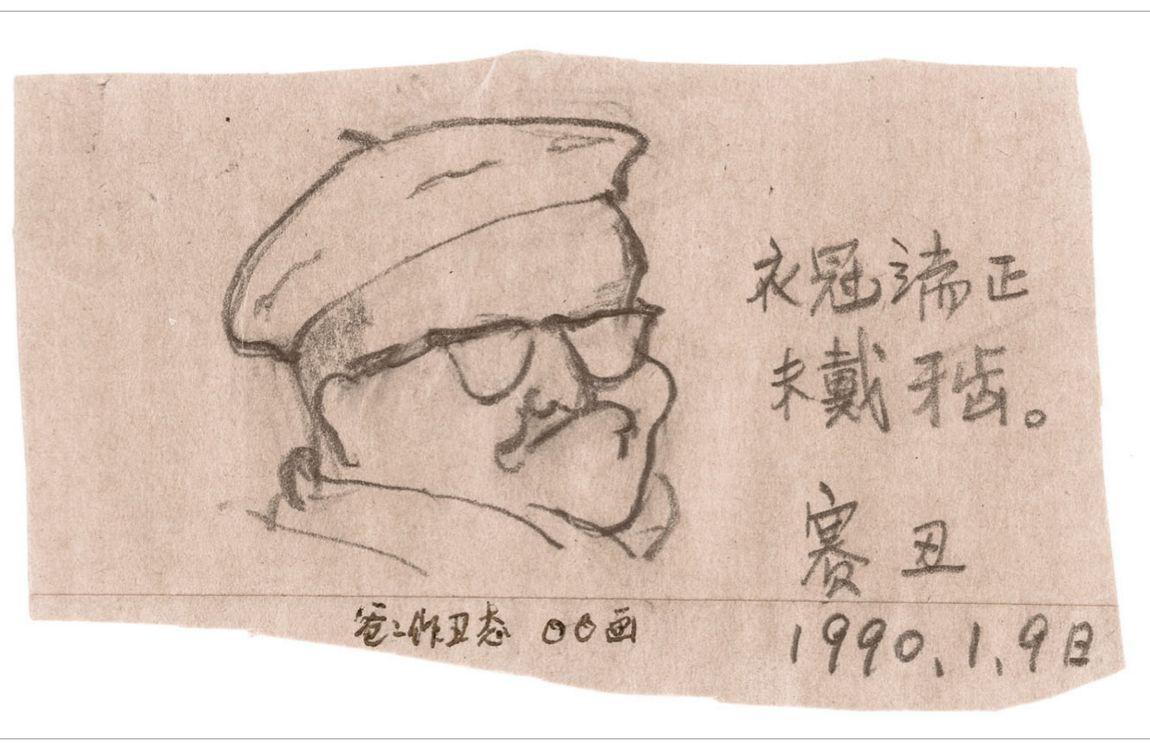 衣冠端正
未戴牙齿。
赛丑
1990、1、9日
爸〻作丑态 〇〇画